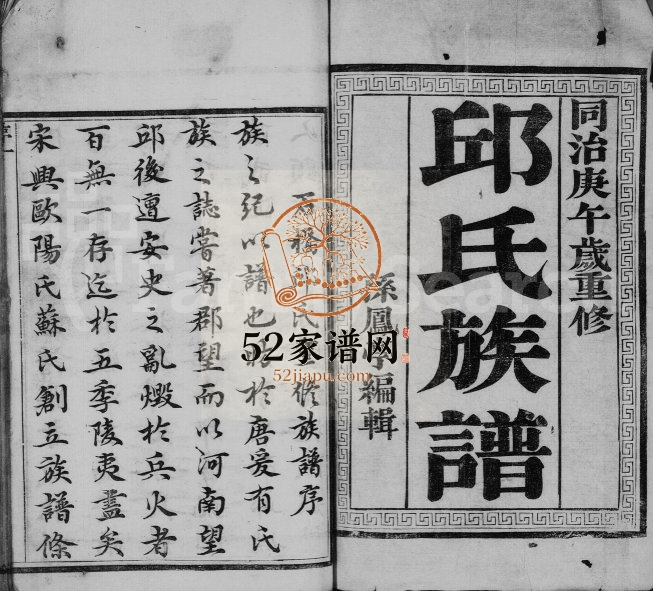 同治庚午歲重修
邱氏族譜
孫鳳 編輯
橋 氏 修族譜序
族之紀以譜也 於唐爰有氏
族之誌嘗著郡望而以河南望
邱後遭安史之亂燬於兵火者
百無一存迄於五季陵夷盡矣
宋興歐陽氏蘇氏創立族譜條
序一
52家谱网
52jiapu.com